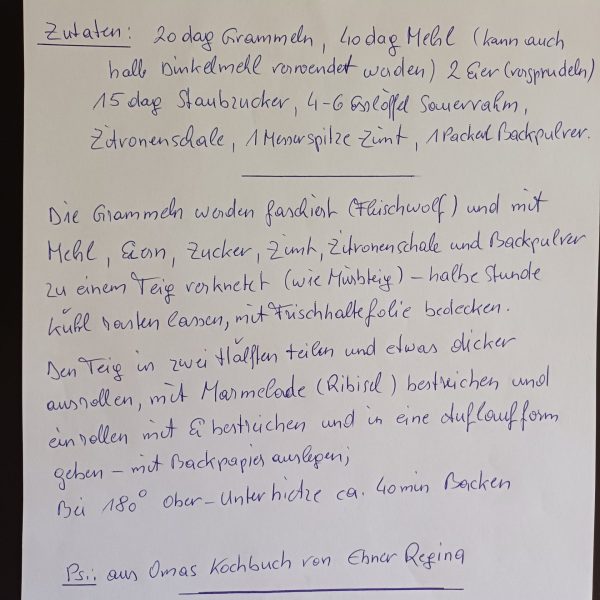 Zutaten: 20 dag Grammeln, 40 dag Mehl (kann auch
halb Dinkelmehl verwendet werden) 2 Eier (versprudeln)
15 dag Staubzucker, 4-6 Esslöffel Sauerrahm,
Zitronenschale, 1 Messerspitze Zimt, 1 Packerl Backpulver.
Die Grammeln werden faschiert (Fleischwolf) und mit
Mehl, Eiern, Zucker, Zimt, Zitronenschale und Backpulver
zu einem Teig verknetet (wie Mürbteig) – halbe Stunde
kühl rasten lassen, mit Frischhaltefolie bedecken.
Den Teig in zwei Hälften teilen und etwas dicker
ausrollen, mit Marmelade (Ribisel) bestreichen und
einrollen mit Ei bestreichen und in eine Auflaufform
geben – mit Backpapier auslegen;
Bei 180° Ober-Unterhitze ca. 40 min Backen
Ps.: aus Omas Kochbuch von Ebner Regina